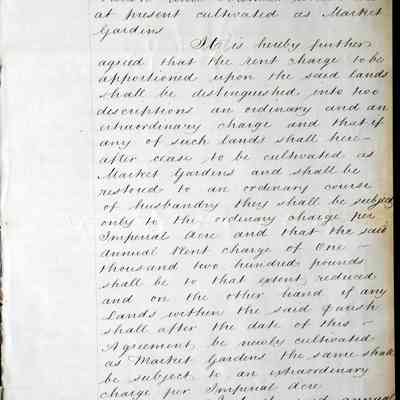 at present cultivated as Market
Gardens
It is hereby further
agreed that the rent charge to be
apportioned upon the said lands
shall be distinguished into two
descriptions an ordinary and an
extraordinary charge and that if
any of such lands shall here-
after cease to be cultivated as
Market Gardens and shall be
restored to an ordinary course
of husbandry they shall be subject
only to the ordinary charge per
Imperial Acre and that the said
annual Rent charge of One -
thousand two hundred pounds
shall be to that extent reduced
and on the other hand if any
Lands within the said Parish
shall after the date of this -
Agreement be newly cultivated
as Market Gardens the same shall
be subject to an extraordinary
charge per Imperial Acre
annual